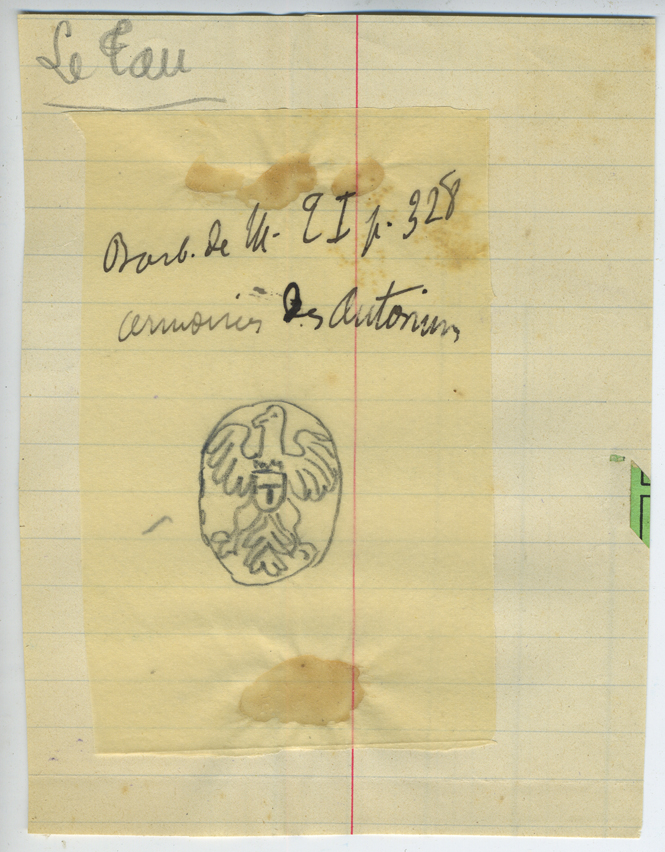 Le Tau
Barb. de M. T I p. 328
armoiries des Antonins
T